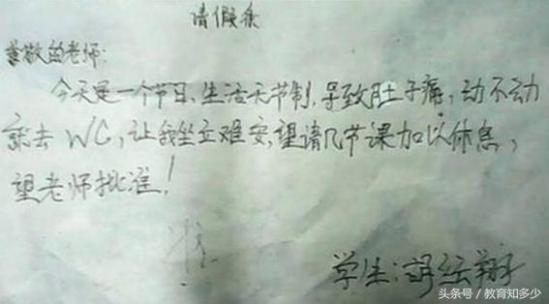 请假条
尊敬的老师:
今天是一个节日,生活无节制,导致肚子痛,动不动
就去WC,让我坐立难安,望请几节课加以休息,
望老师批准!
准
学生:
头条号/教育知多少